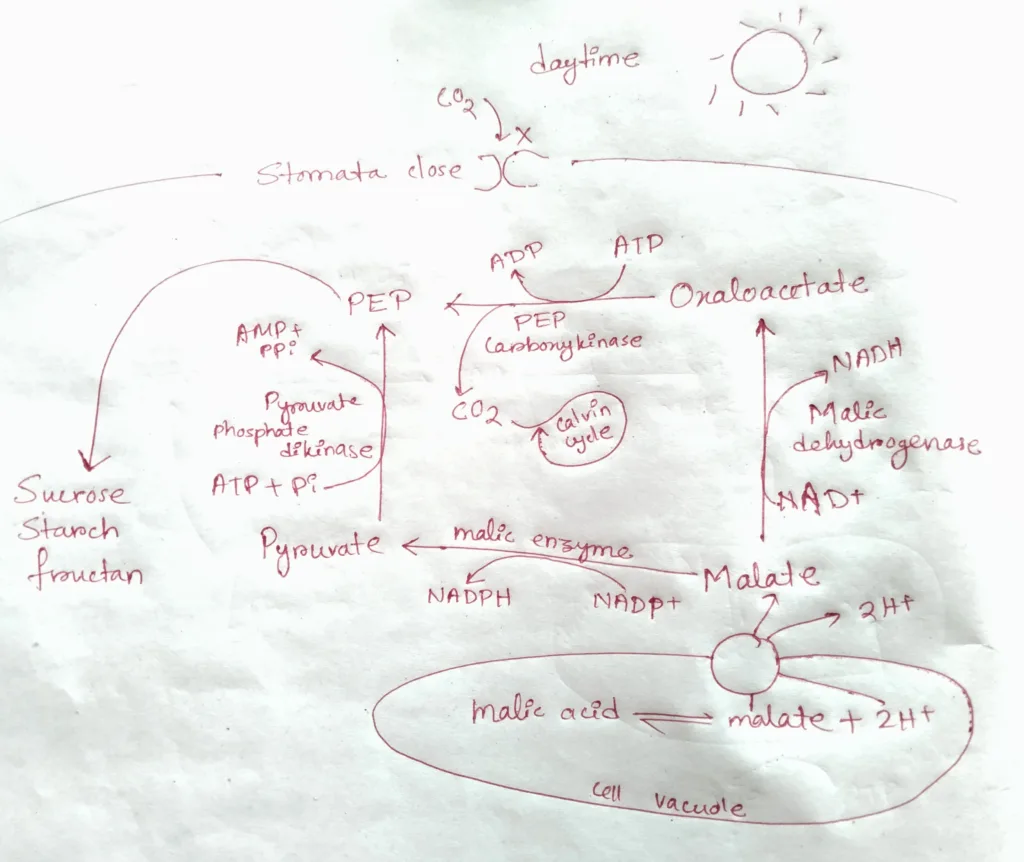 daytime
CO2
x
Stomata close
ADP
ATP
PEP
Oxaloacetate
PEP
Carboxykinase
AMP+
PPi
NADH
Pyruvate
phosphate
dikinase
CO2
Calvin
cycle
Malic
dehydrogenase
ATP + Pi
NAD+
Sucrose
Starch
fructan
Pyruvate
malic enzyme
Malate
NADPH
NADP+
2H+
malic acid
malate + 2H+
cell vacuole